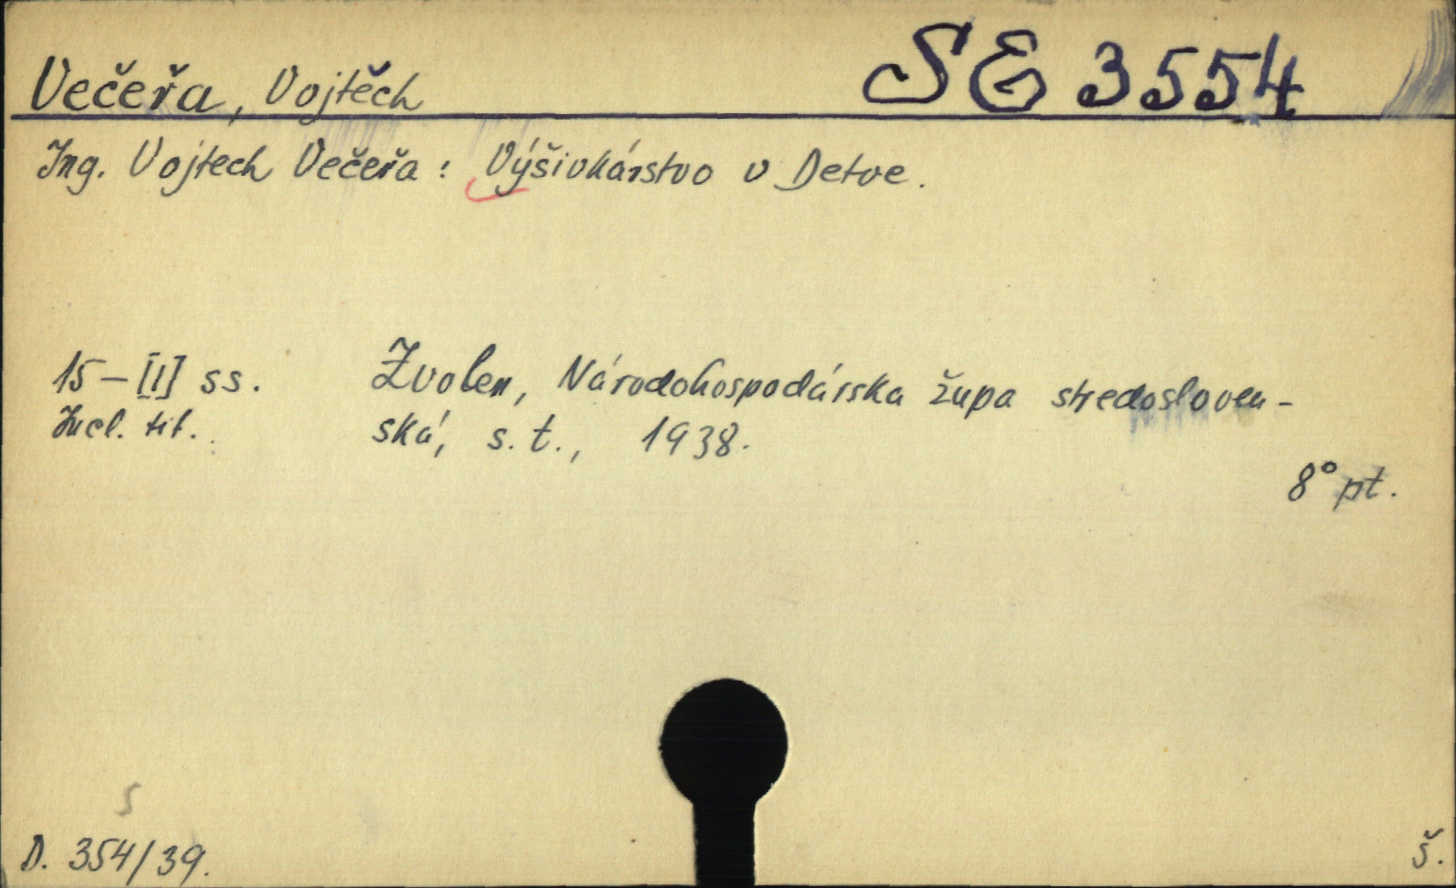 Večeřa, Vojtěch SE 3554
Ing. Vojtech Večeřa: Výšivkárstvo v Detve.
15-[I] ss. Zvolen, Národohospodárska župa stredosloven-
Incl. tit. ská, s. t., 1938.
8° pt.
S
D. 354/39. š.